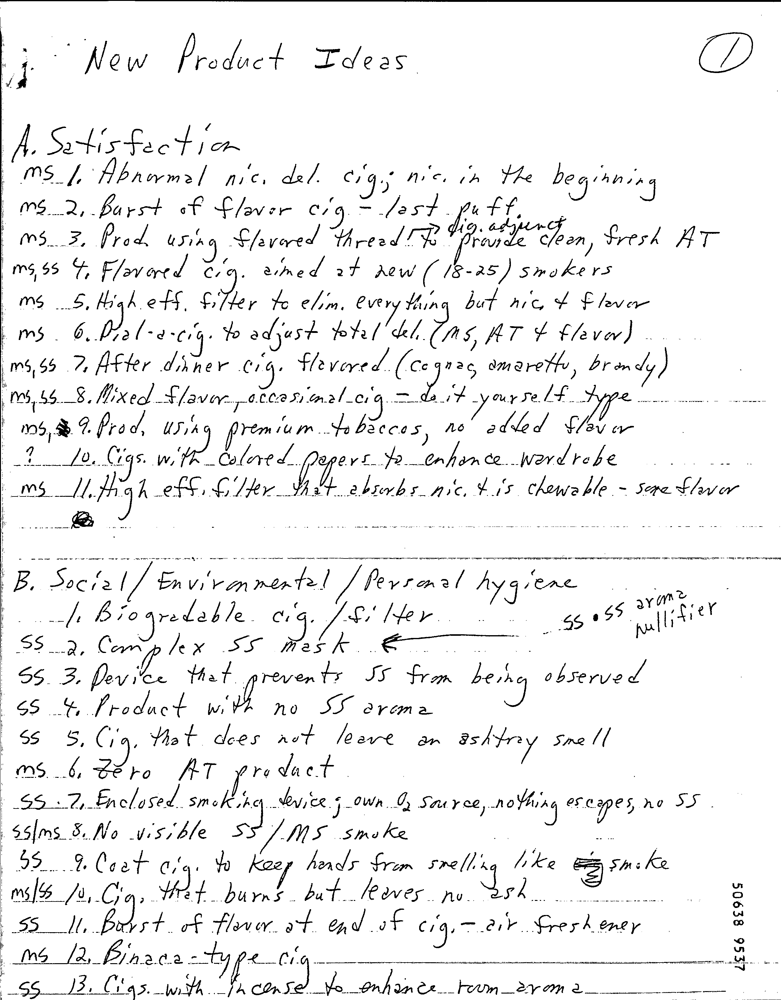 New Product Ideas
1
A. Satisfaction
ms 1. Abnormal nic. del. cig.; nic. in the beginning
ms 2. Burst of flavor cig - last puff
cig. adjunct
ms 3. Prod. using flavored thread to provide clean, fresh AT
ms,ss 4. Flavored cig. aimed at new (18-25) smokers
ms 5. High eff. filter to elim. everything but nic. & flavor
ms 6. Dial-a-cig. to adjust total del. (MS, AT & flavor)
ms,ss 7. After dinner cig. flavored (cognac, amaretto, brandy)
ms,ss 8. Mixed flavor, occasional cig - do it yourself type
ms, 9. Prod. using premium tobaccos, no added flavor
? 10. Cigs. with colored papers to enhance wardrobe
ms 11. High eff. filter that absorbs nic. & is chewable - some flavor
B. Social/Environmental/Personal hygiene
1. Biogradable cig./filter
SS • SS aroma nullifier
SS 2. Complex SS mask ←
SS 3. Device that prevents SS from being observed
SS 4. Product with no SS aroma
SS 5. Cig. that does not leave an ashtray smell
ms 6. Zero AT product
SS 7. Enclosed smoking device; own O2 source, nothing escapes, no SS
SS/ms 8. No visible SS/MS smoke
SS 9. Coat cig. to keep hands from smelling like smoke
ms/SS 10. Cig. that burns but leaves no ash
SS 11. Burst of flavor at end of cig. - air freshener
ms 12. Binaca-type cig
SS 13. Cigs. with incense to enhance room aroma
50638 9537